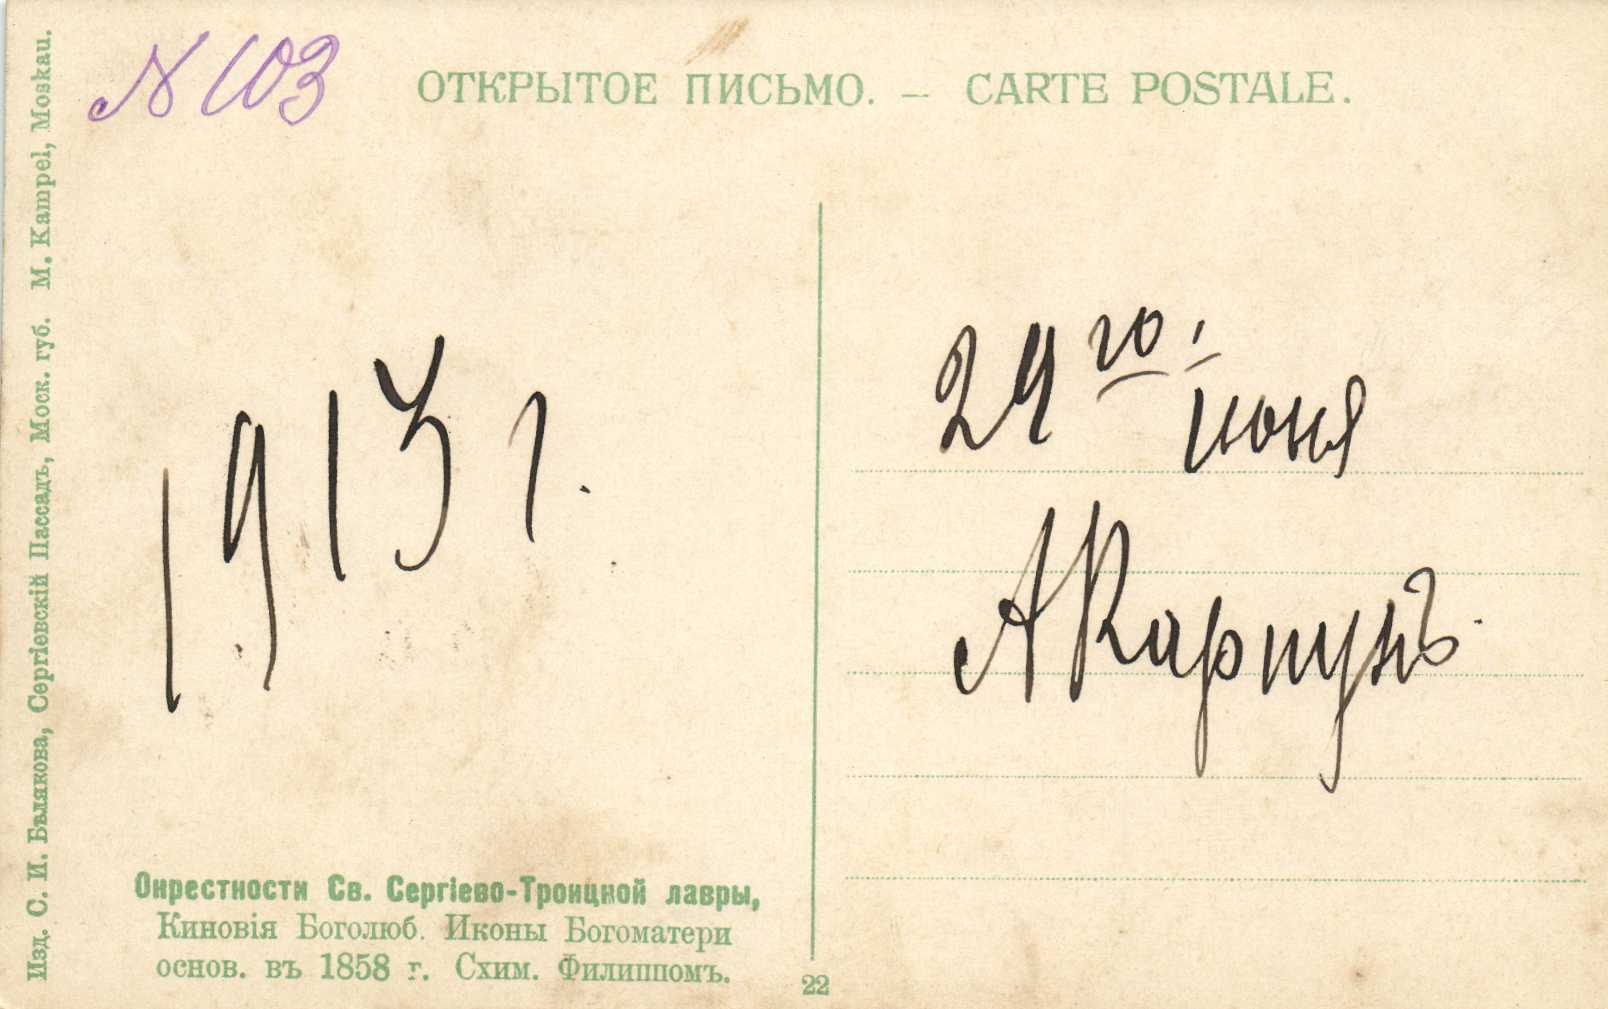 N 103
ОТКРЫТОЕ ПИСЬМО. – CARTE POSTALE.
Изд. С. И. Балякова, Сергіевскій Пассадъ, Моск. губ. М. Kampel, Moskau.
1913 г.
29го
июня
А Карпунъ.
Окрестности Св. Сергіево-Троицкой лавры,
Киновія Боголюб. Иконы Богоматери
основ. въ 1858 г. Схим. Филиппомъ.
22